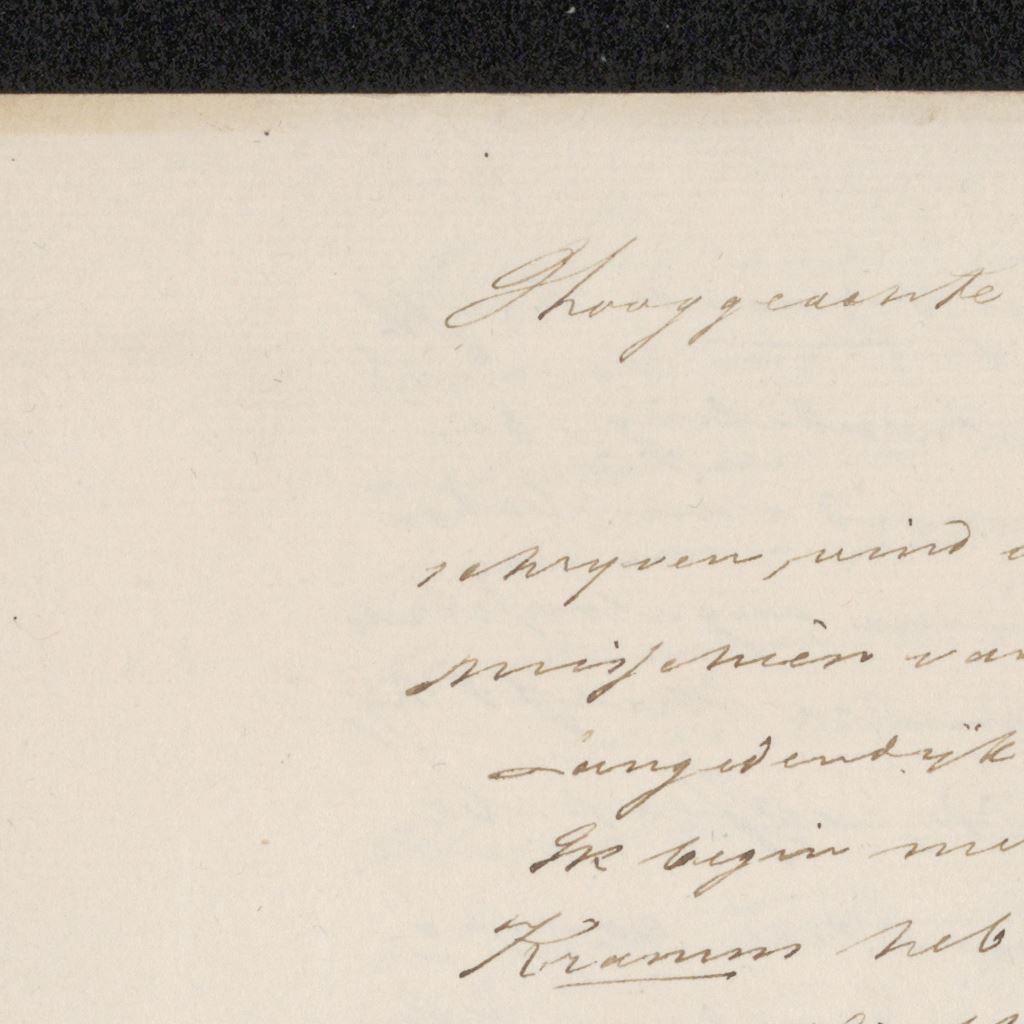 Hooggeachte
schryven, vind
misschien van
Langedendÿk
Ik begin me
Kramm heb